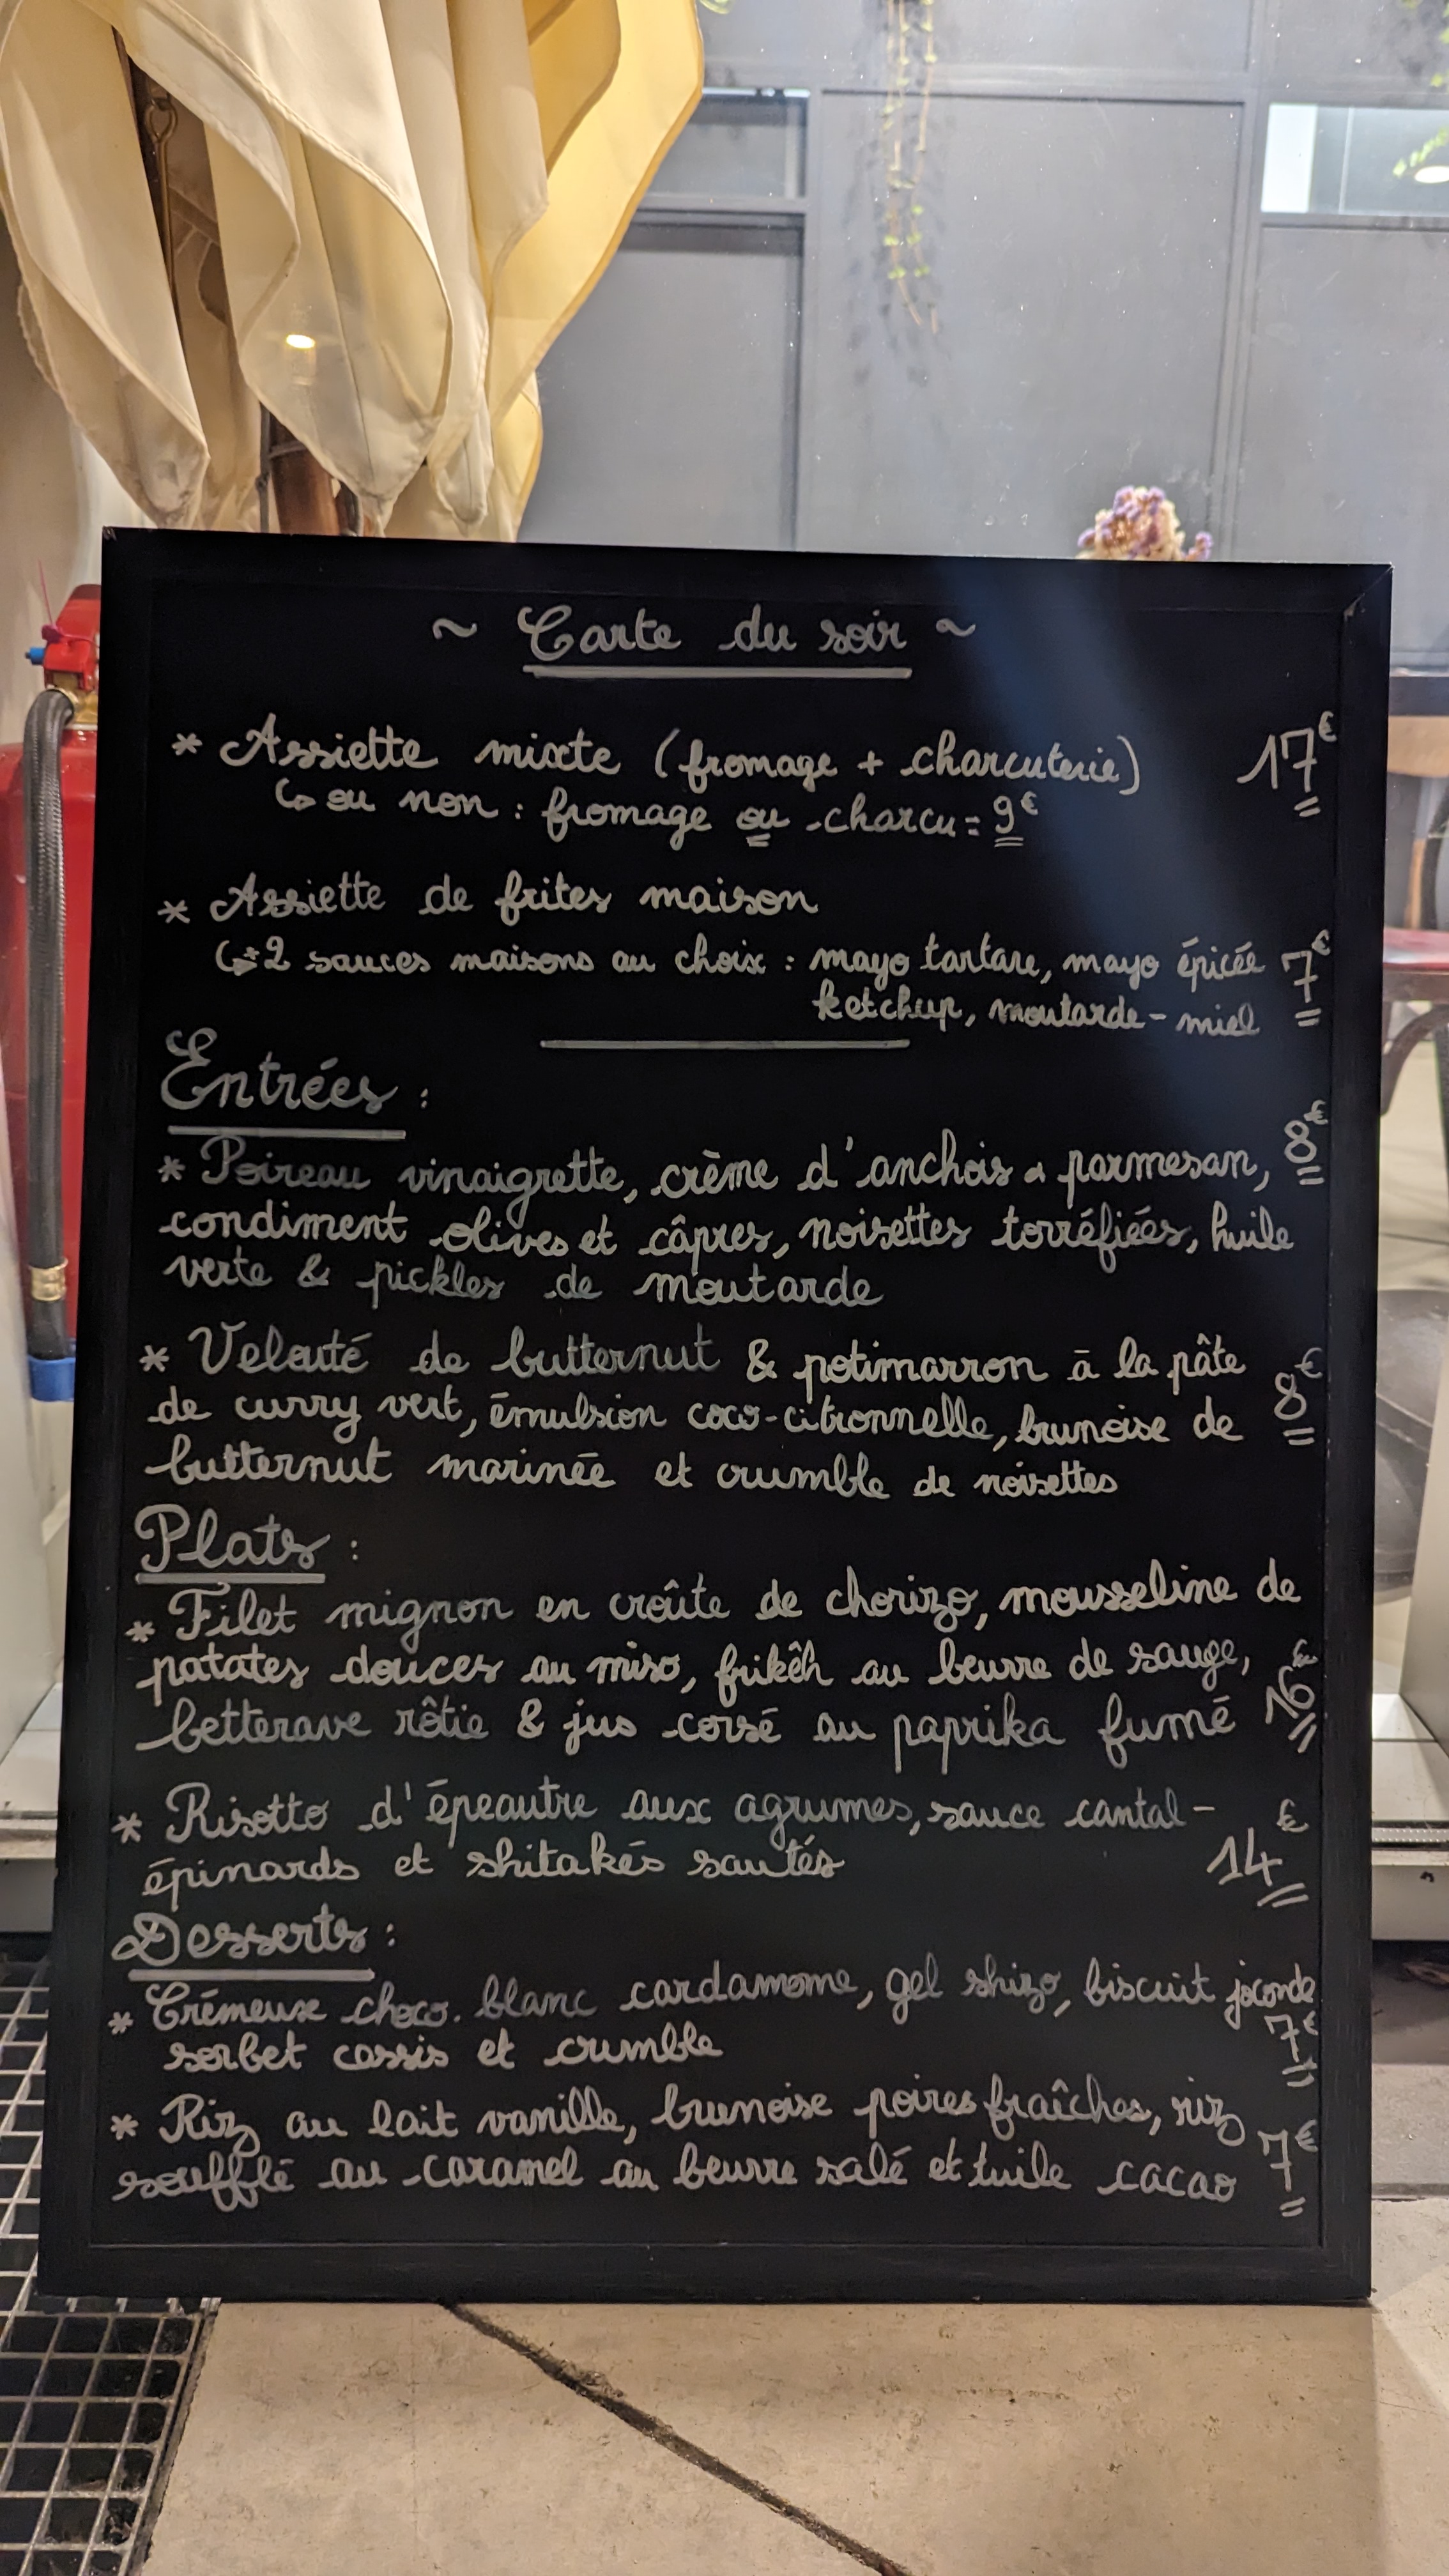 ~ Carte du soir ~
* Assiette mixte (fromage + charcuterie) 17€
↪ ou non : fromage ou charcu = 9€
* Assiette de frites maison
↪ 2 sauces maisons au choix : mayo tartare, mayo épicée 7€
ketchup, moutarde - miel
Entrées :
* Poireau vinaigrette, crème d'anchois & parmesan, 8€
condiment olives et câpres, noisettes torréfiées, huile
verte & pickles de moutarde
* Velouté de butternut & potimarron à la pâte
de curry vert, émulsion coco-citronnelle, brunoise de 8€
butternut marinée et crumble de noisettes
Plats :
* Filet mignon en croûte de chorizo, mousseline de
patates douces au miso, frikêh au beurre de sauge,
betterave rôtie & jus corsé au paprika fumé 16€
* Risotto d'épeautre aux agrumes, sauce cantal-
épinards et shitakés sautés 14€
Desserts :
* Crémeux choco. blanc cardamome, gel shizo, biscuit joconde
sorbet cassis et crumble 7€
* Riz au lait vanille, brunoise poires fraîches, riz
soufflé au caramel au beurre salé et tuile cacao 7€